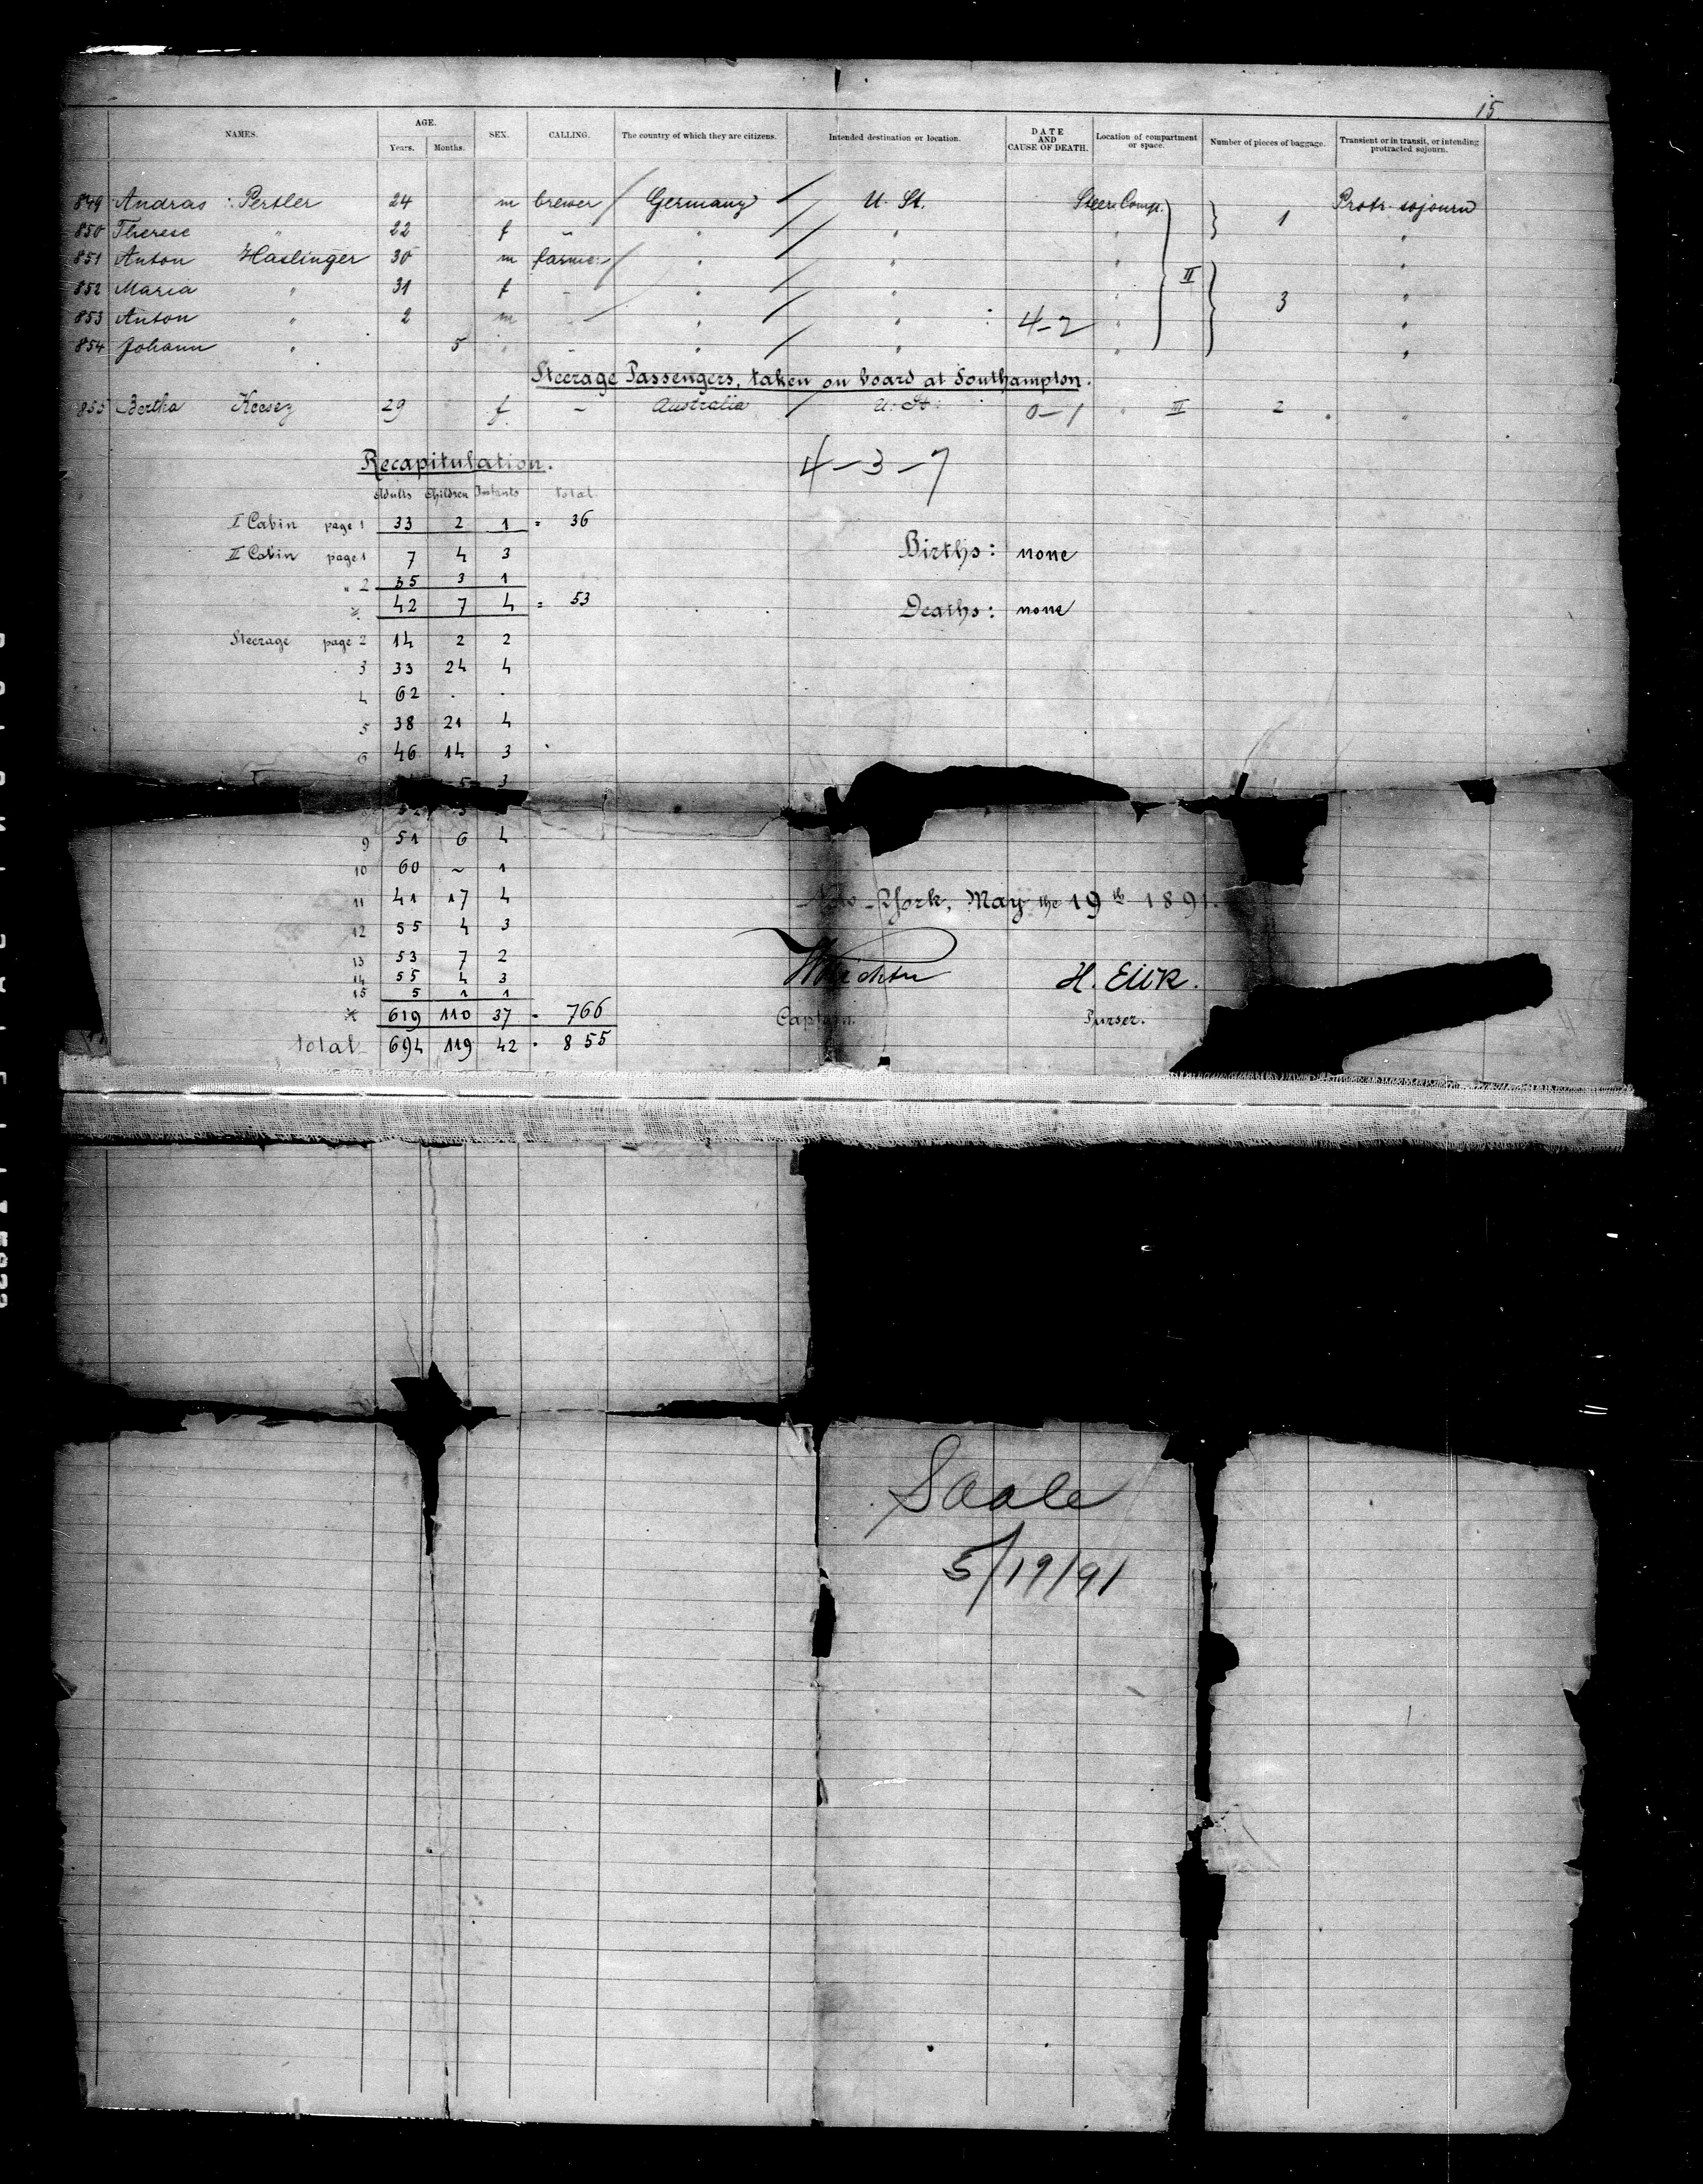 15.
NAMES. AGE. Years. Months. SEX. CALLING. The country of which they are citizens. Intended destination or location. DATE AND CAUSE OF DEATH. Location of compartment or space. Number of pieces of baggage. Transient or in transit, or intending protracted sojourn.
849 Andras Pertler 24 m brewer Germany U. St. Steer. Comp. 1 Protr. sojourn
850 Therese " 22 f - " " " "
851 Anton Haslinger 30 m farmer " " " II "
852 Maria " 31 f - " " " 3 "
853 Anton " 2 m - " " 4-2 " "
854 Johann " 5 " - " " " "
Steerage Passengers, taken on board at Southampton.
855 Bertha 29 f - Australia U. St. 0-1 " III 2 "
Recapitulation. 4-3-7
Adults Children Infants total
I Cabin page 1 33 2 1 = 36
II Cabin page 1 7 4 3 Births: none
" 2 35 3 1
42 7 4 = 53 Deaths: none
Steerage page 2 14 2 2
3 33 24 4
4 62 . .
5 38 21 4
6 46 14 3
5 3
8
9 51 6 4
10 60 ~ 1
11 41 17 4 New-York, May the 19th 1891.
12 55 4 3
13 53 7 2
14 55 4 3 H. Eilk.
15 5 1 1
619 110 37 = 766 Captain. Purser.
total 694 119 42 = 855
Saale
5/19/91